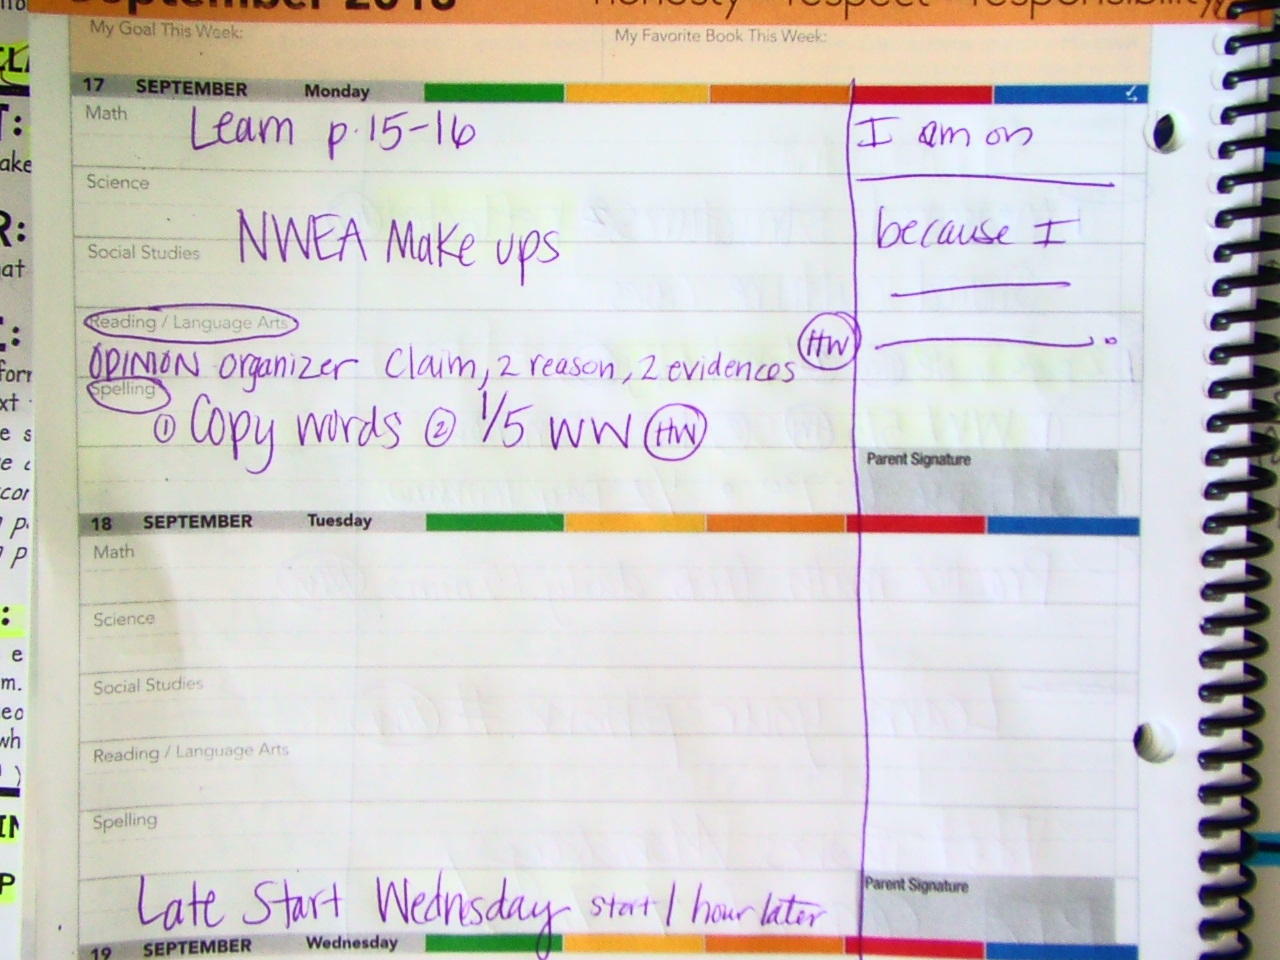 September 2018
honesty respect responsibility
My Goal This Week:
My Favorite Book This Week:
17 SEPTEMBER Monday
Math
Learn p. 15-16
I am on
Science
NWEA Make ups
because I
Social Studies
Reading / Language Arts
OPINION organizer Claim, 2 reason, 2 evidences HW
Spelling
① Copy words ② 1/5 WW HW
Parent Signature
18 SEPTEMBER Tuesday
Math
Science
Social Studies
Reading / Language Arts
Spelling
Late Start Wednesday start 1 hour later
Parent Signature
19 SEPTEMBER Wednesday